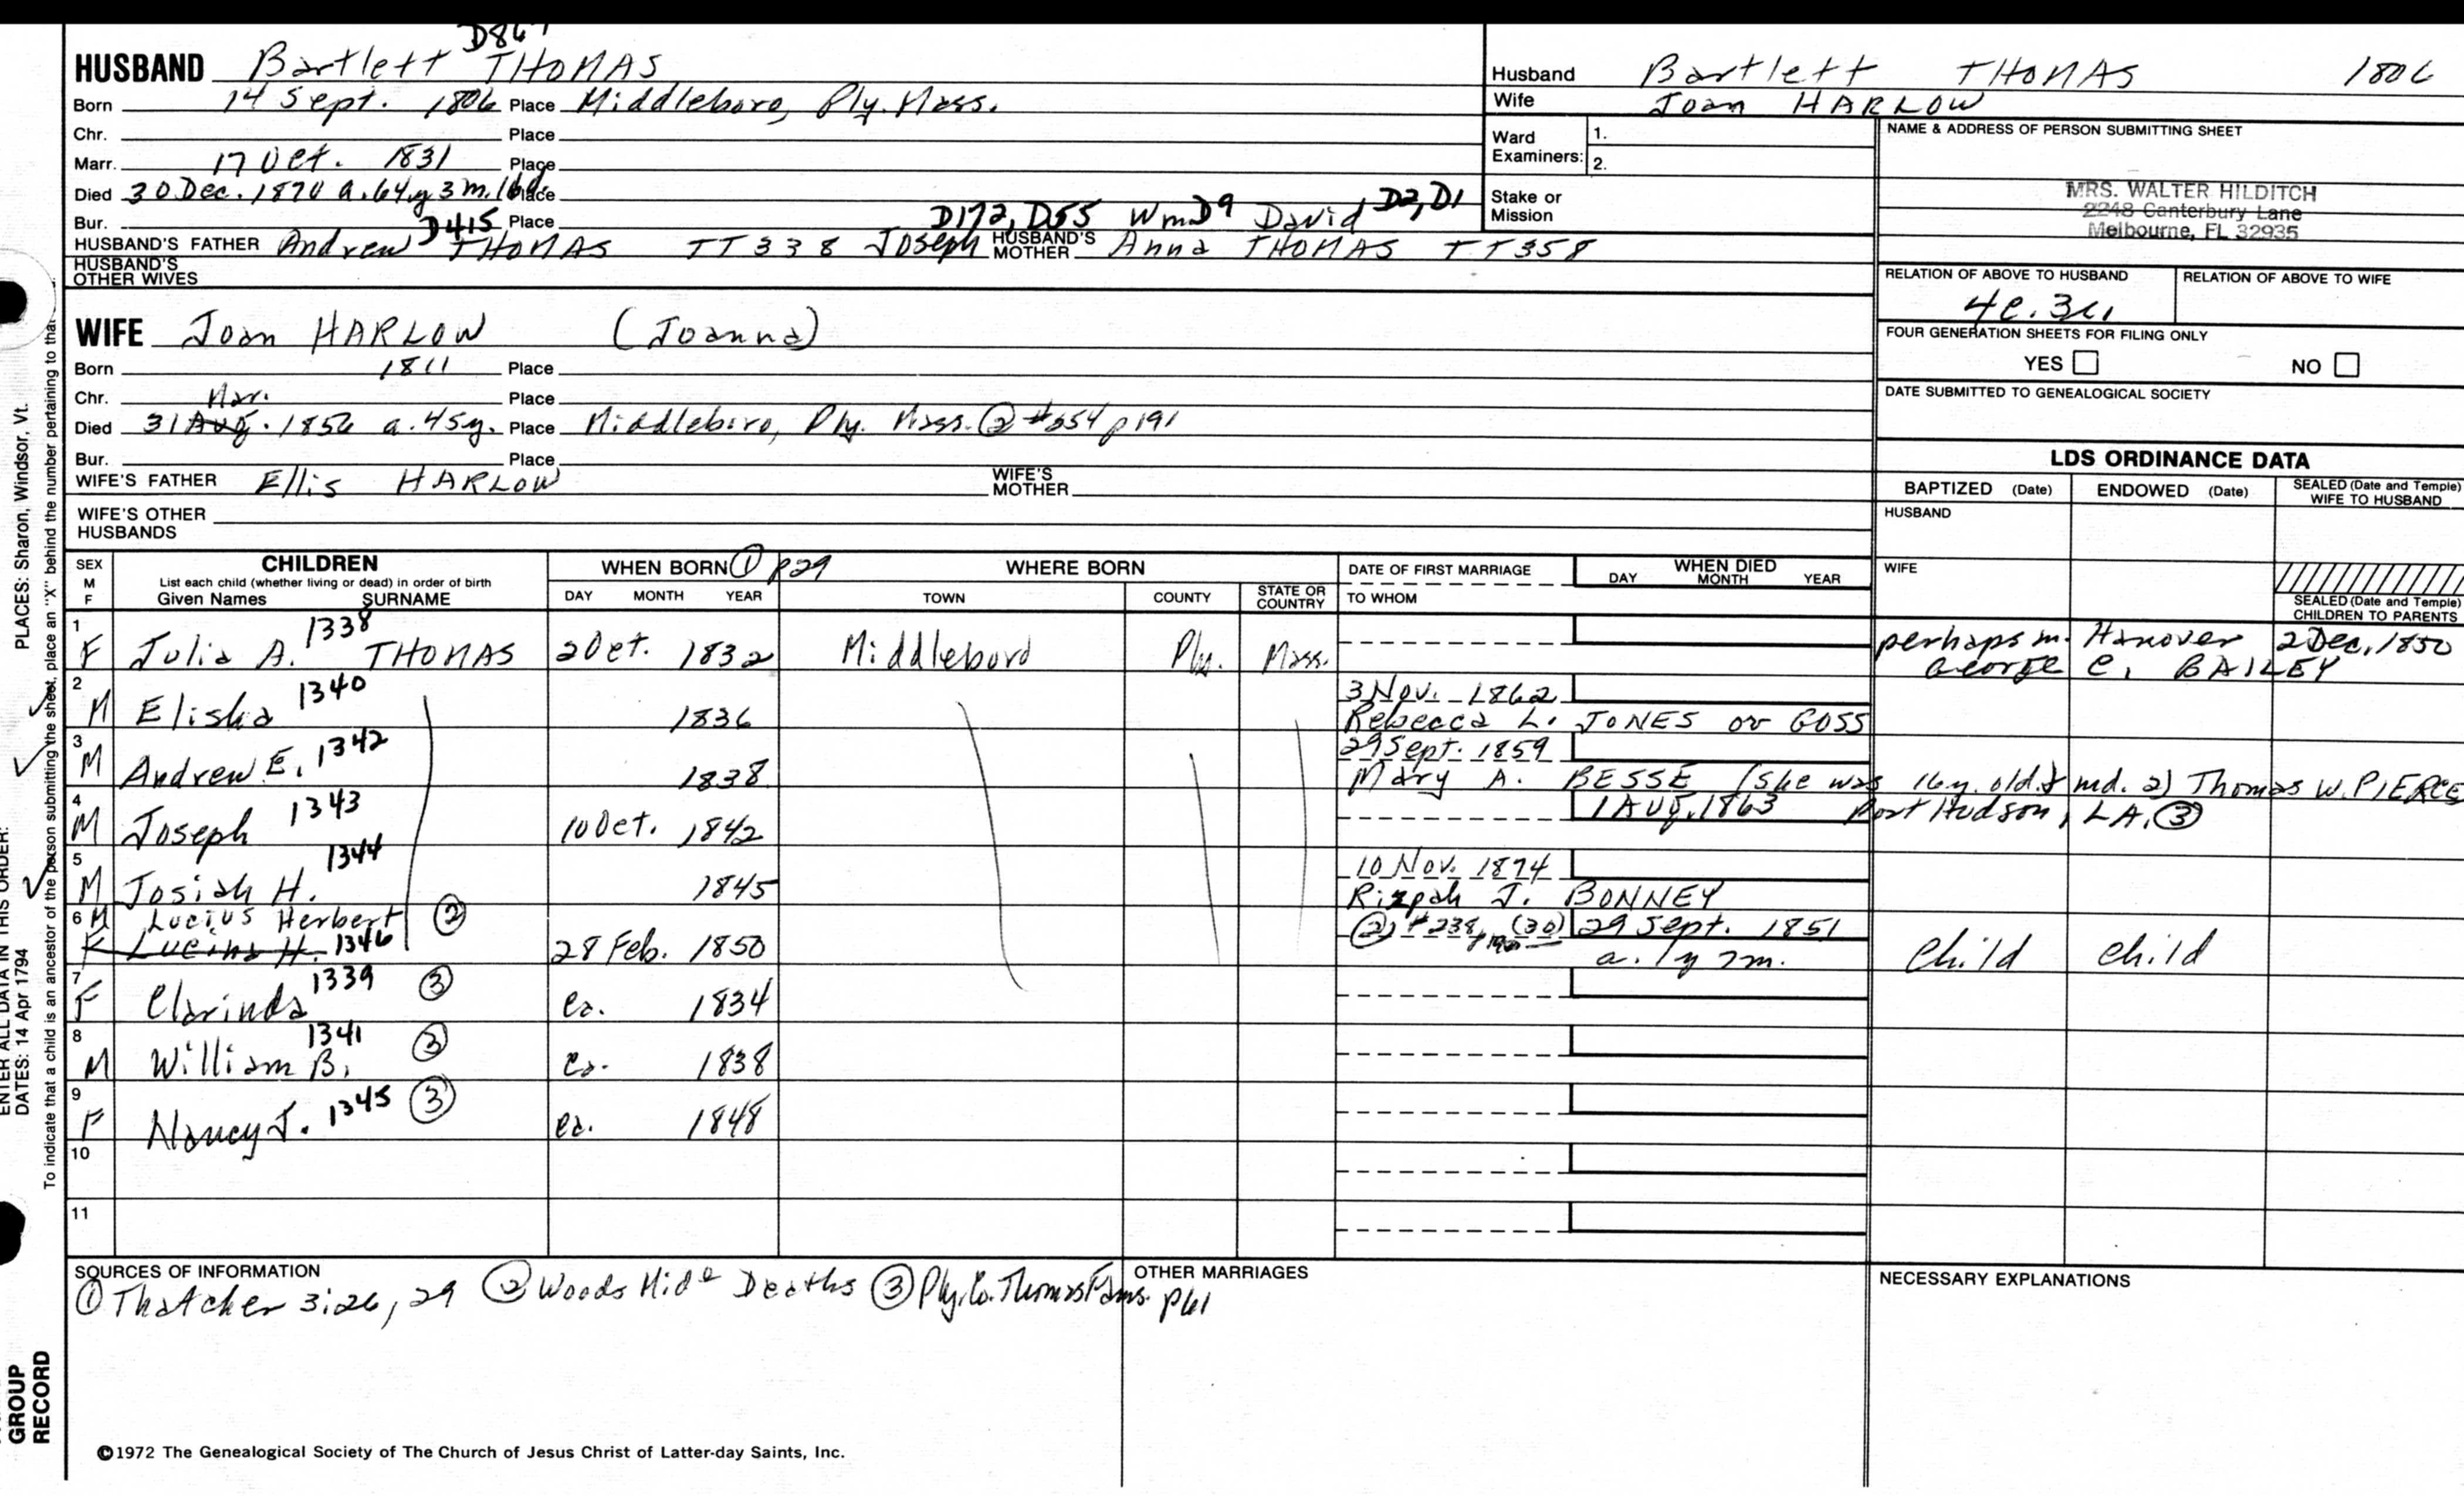 D867
HUSBAND Bartlett THOMAS
Born 14 Sept. 1806 Place Middleboro, Ply. Mass.
Chr. Place
Marr. 17 Oct. 1831 Place
Died 30 Dec. 1870 a. 64y 3m. 16d. Place
Bur. Place
D415 D172, D55 Wm D9 David D2, D1
HUSBAND'S FATHER Andrew THOMAS TT338 Joseph HUSBAND'S MOTHER Anna THOMAS TT358
HUSBAND'S OTHER WIVES
WIFE Joan HARLOW (Joanna)
Born 1811 Place
Chr. Place
Mar.
Died 31 Aug. 1856 a. 45y. Place Middleboro, Ply. Mass. ② #654 p191
Bur. Place
WIFE'S FATHER Ellis HARLOW WIFE'S MOTHER
WIFE'S OTHER HUSBANDS
Husband Bartlett THOMAS 1806
Wife Joan HARLOW
Ward Examiners: 1.
2.
Stake or Mission
NAME & ADDRESS OF PERSON SUBMITTING SHEET
MRS. WALTER HILDITCH
2248 Canterbury Lane
Melbourne, FL 32935
RELATION OF ABOVE TO HUSBAND RELATION OF ABOVE TO WIFE
4c.3r.
FOUR GENERATION SHEETS FOR FILING ONLY
YES NO
DATE SUBMITTED TO GENEALOGICAL SOCIETY
LDS ORDINANCE DATA
BAPTIZED (Date) ENDOWED (Date) SEALED (Date and Temple) WIFE TO HUSBAND
HUSBAND
WIFE
SEALED (Date and Temple) CHILDREN TO PARENTS
SEX M F CHILDREN WHEN BORN ① p29 WHERE BORN DATE OF FIRST MARRIAGE WHEN DIED
List each child (whether living or dead) in order of birth
Given Names SURNAME DAY MONTH YEAR TOWN COUNTY STATE OR COUNTRY TO WHOM DAY MONTH YEAR
1 F Julia A. 1338 THOMAS 2 Oct. 1832 Middleboro Ply. Mass. perhaps m. Hanover 2 Dec. 1850
George C. BAILEY
2 M Elisha 1340 1836 3 Nov. 1862
Rebecca L. JONES or GOSS
3 M Andrew E. 1342 1838 29 Sept. 1859
Mary A. BESSE (she was 16y. old & md. 2) Thomas W. PIERCE
4 M Joseph 1343 10 Oct. 1842 1 Aug. 1863 Port Hudson, LA. ③
5 M Josiah H. 1344 1845 10 Nov. 1874
Rizpah J. BONNEY
6 M Lucius Herbert ② ② #238 p190 (30) 29 Sept. 1851
F Lucina H. 1346 28 Feb. 1850 a. 1y 7m. Child Child
7 F Clarinda 1339 ③ ca. 1834
8 M William B. 1341 ③ ca. 1838
9 F Nancy J. 1345 ③ ca. 1848
10
11
SOURCES OF INFORMATION
① Thatcher 3:26, 29 ② Woods Mid° Deaths ③ Ply. Co. Thomas Fams. p61
OTHER MARRIAGES
NECESSARY EXPLANATIONS
©1972 The Genealogical Society of The Church of Jesus Christ of Latter-day Saints, Inc.
GROUP
RECORD
ENTER ALL DATA IN THIS ORDER:
DATES: 14 Apr 1794
PLACES: Sharon, Windsor, Vt.
To indicate that a child is an ancestor of the person submitting the sheet, place an "X" behind the number pertaining to that